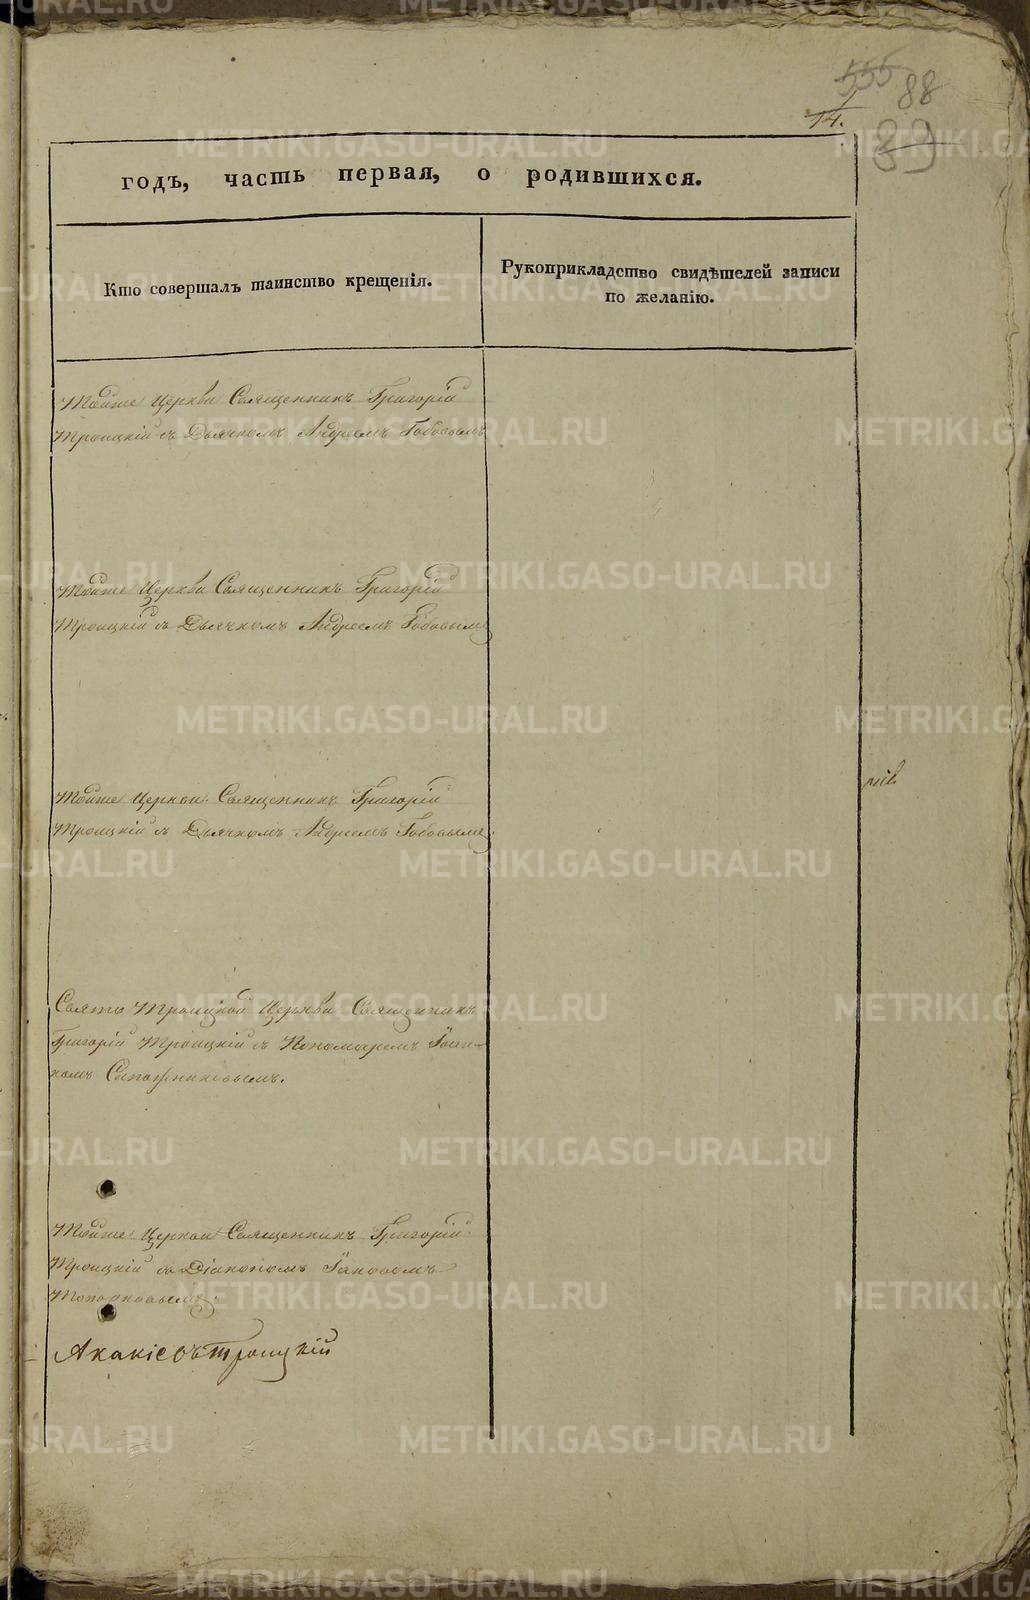 555 88
14. 89
годъ, часть первая, о родившихся.
Кто совершалъ таинство крещенія.
Рукоприкладство свидѣтелей записи
по желанію.
Тойже Церкви Священникъ Григорій
Троицкій съ Дьячкомъ Андреемъ Бобовымъ
Тойже Церкви Священникъ Григорій
Троицкій съ Дьячкомъ Андреемъ Бобовымъ
Тойже Церкви Священникъ Григорій
Троицкій съ Дьячкомъ Андреемъ Бобовымъ
Свято Троицкой Церкви Священникъ
Григорій Троицкій съ Пономаремъ
Сапожниковымъ.
Тойже Церкви Священникъ Григорій
Троицкій съ Діакономъ
Топорковымъ.
Троицкій
METRIKI.GASO-URAL.RU